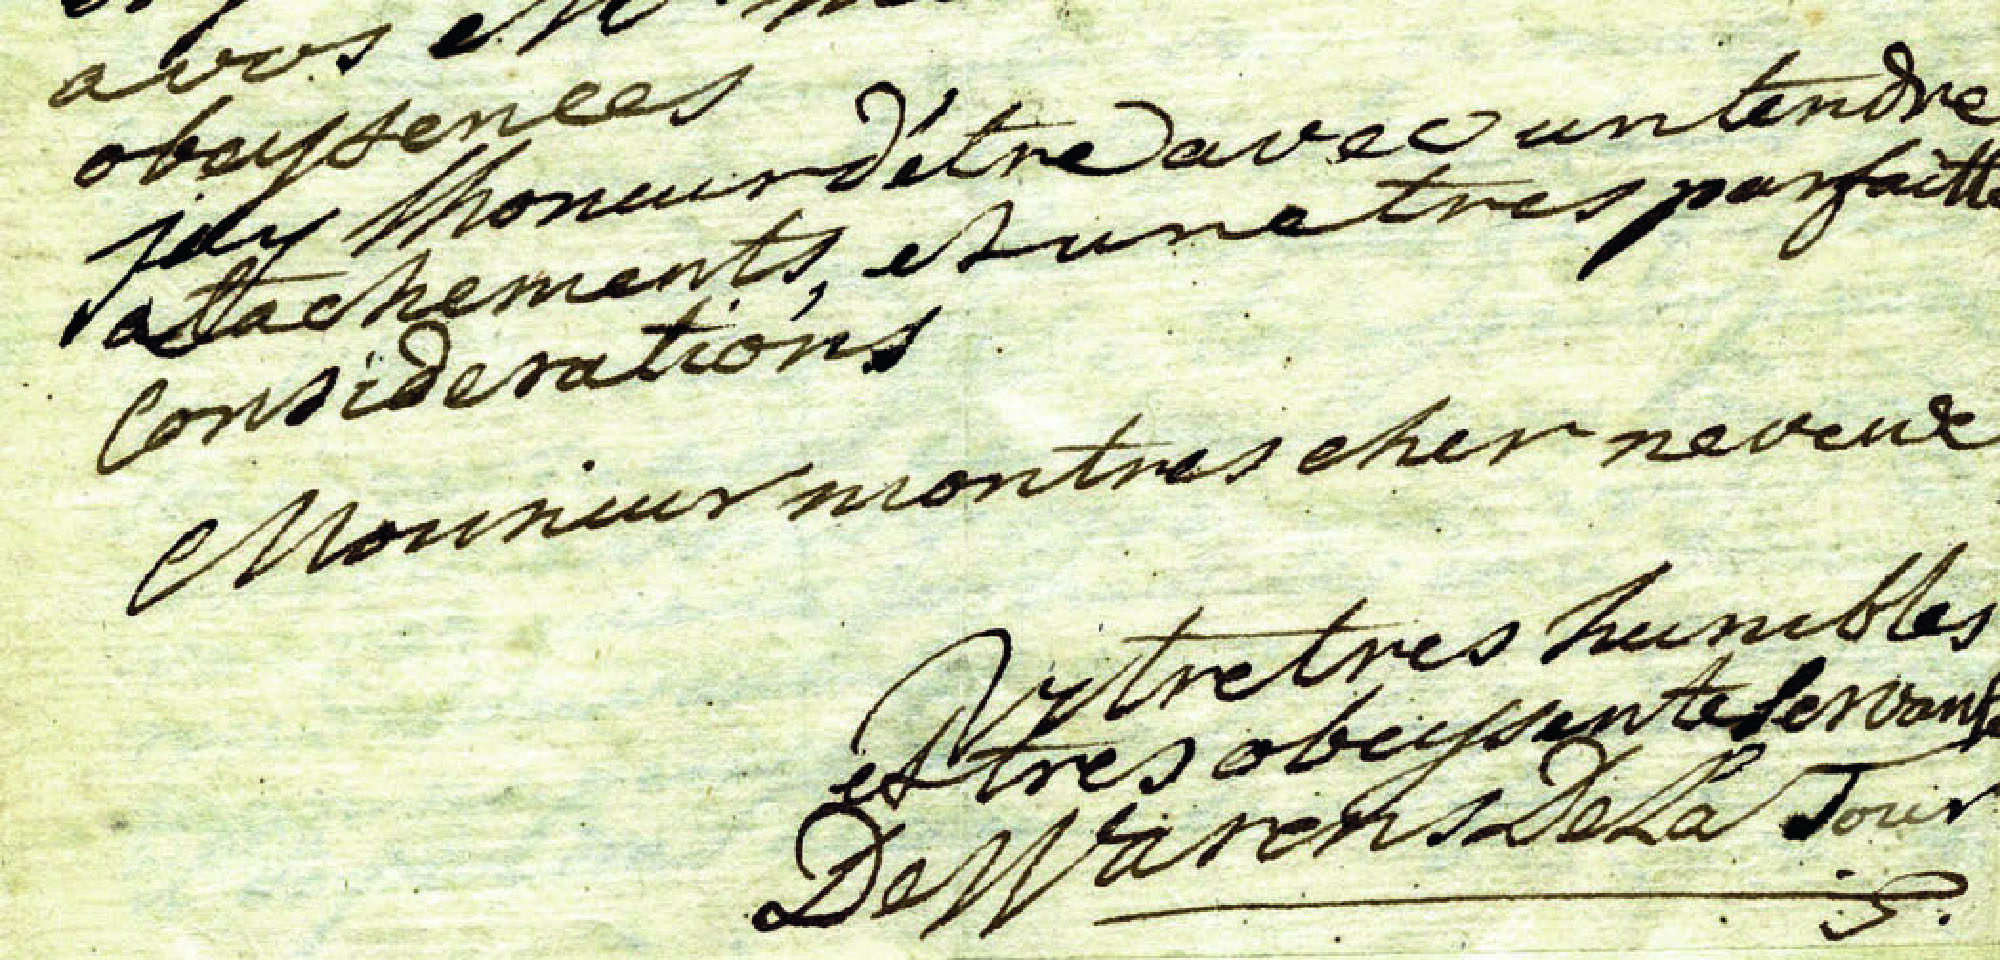 avos et M
obeyssences
jay lhoneur d'être avec un tendre
atachements, et une tres parfaitte
Considerations
Monsieur mon tres cher neveue
Vytre tres humbles
et tres obeyssente Servante
De Warens De La Tour